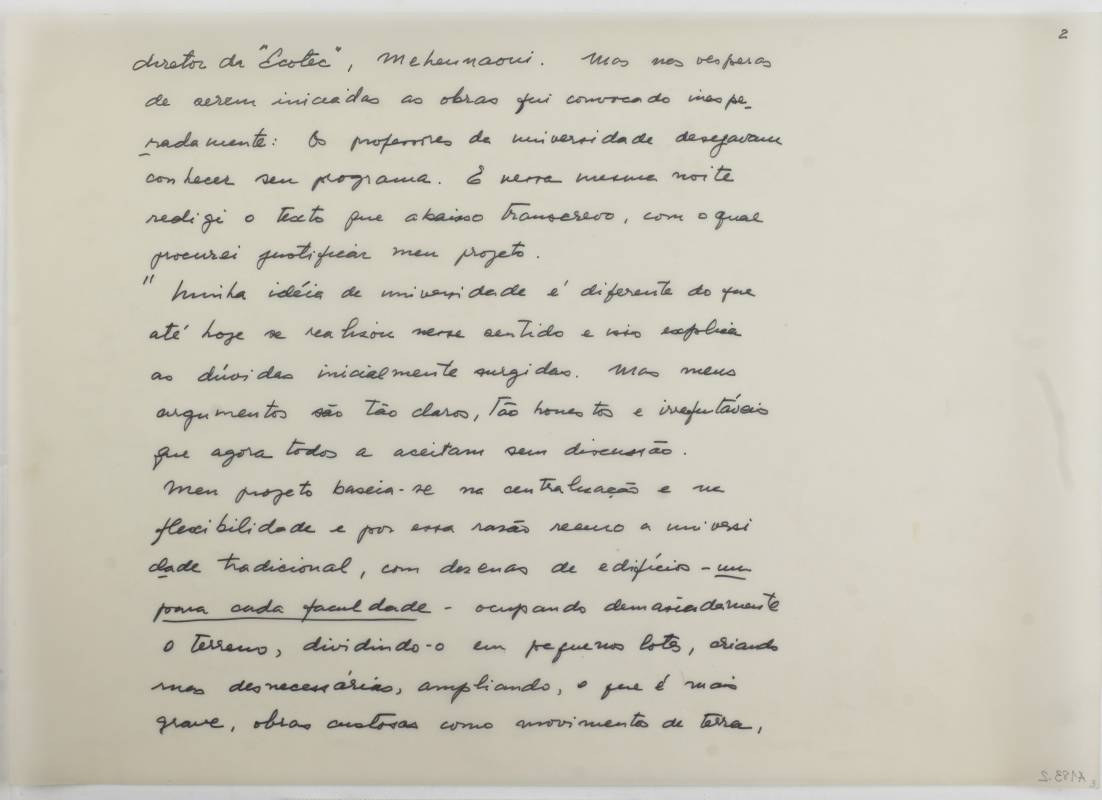 2
diretor da "Ecotec", Mehennaoui. Mas nas vesperas
de serem iniciadas as obras fui convocado inespe-
radamente: Os professores da universidade desejavam
conhecer seu programa. E nessa mesma noite
redigi o texto que abaixo transcrevo, com o qual
procurei justificar meu projeto.
" Minha idéia de universidade é diferente do que
até hoje se realisou nesse sentido e isso explica
as dúvidas inicialmente surgidas. Mas meus
argumentos são tão claros, tão honestos e irrefutáveis
que agora todos a aceitam sem discussão.
Meu projeto baseia-se na centralização e na
flexibilidade e por essa rasão recuso a universi
dade tradicional, com dezenas de edifícios - um
para cada faculdade - ocupando demasiadamente
o terreno, dividindo-o em pequenos lotes, criando
ruas desnecessárias, ampliando, o que é mais
grave, obras custosas como movimento de terra,
A183.2